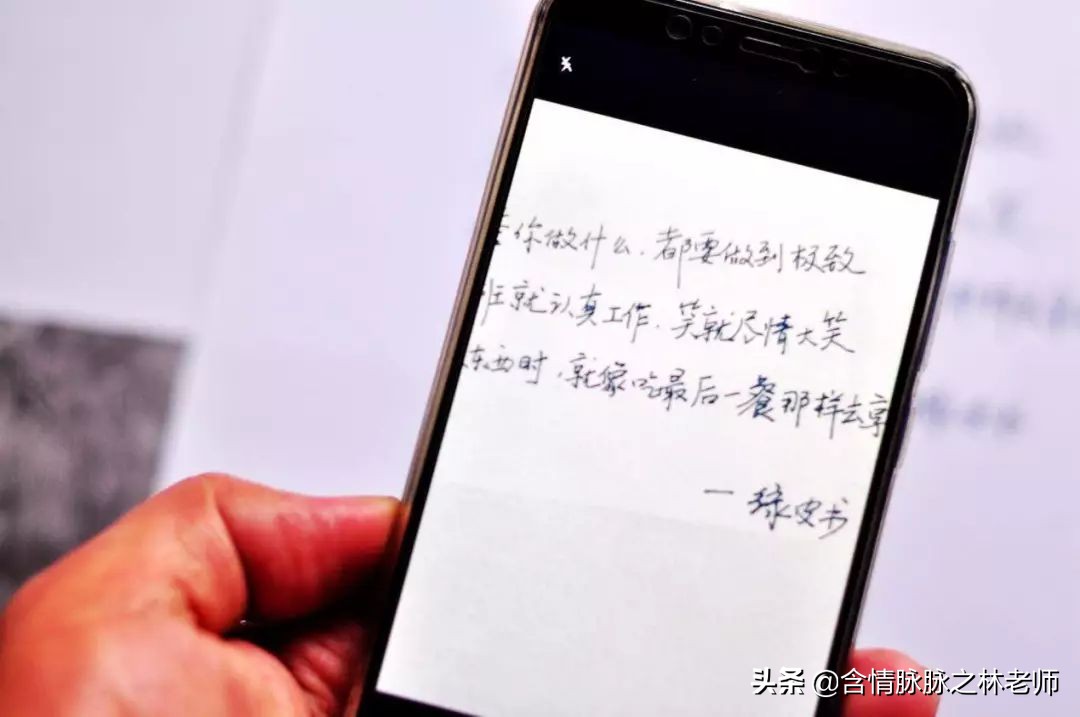 你做什么.都要做到极致
班就认真工作.笑就尽情大笑
东西时,就像吃最后一餐那样去享
一绿皮书
头条 @含情脉脉之林老师